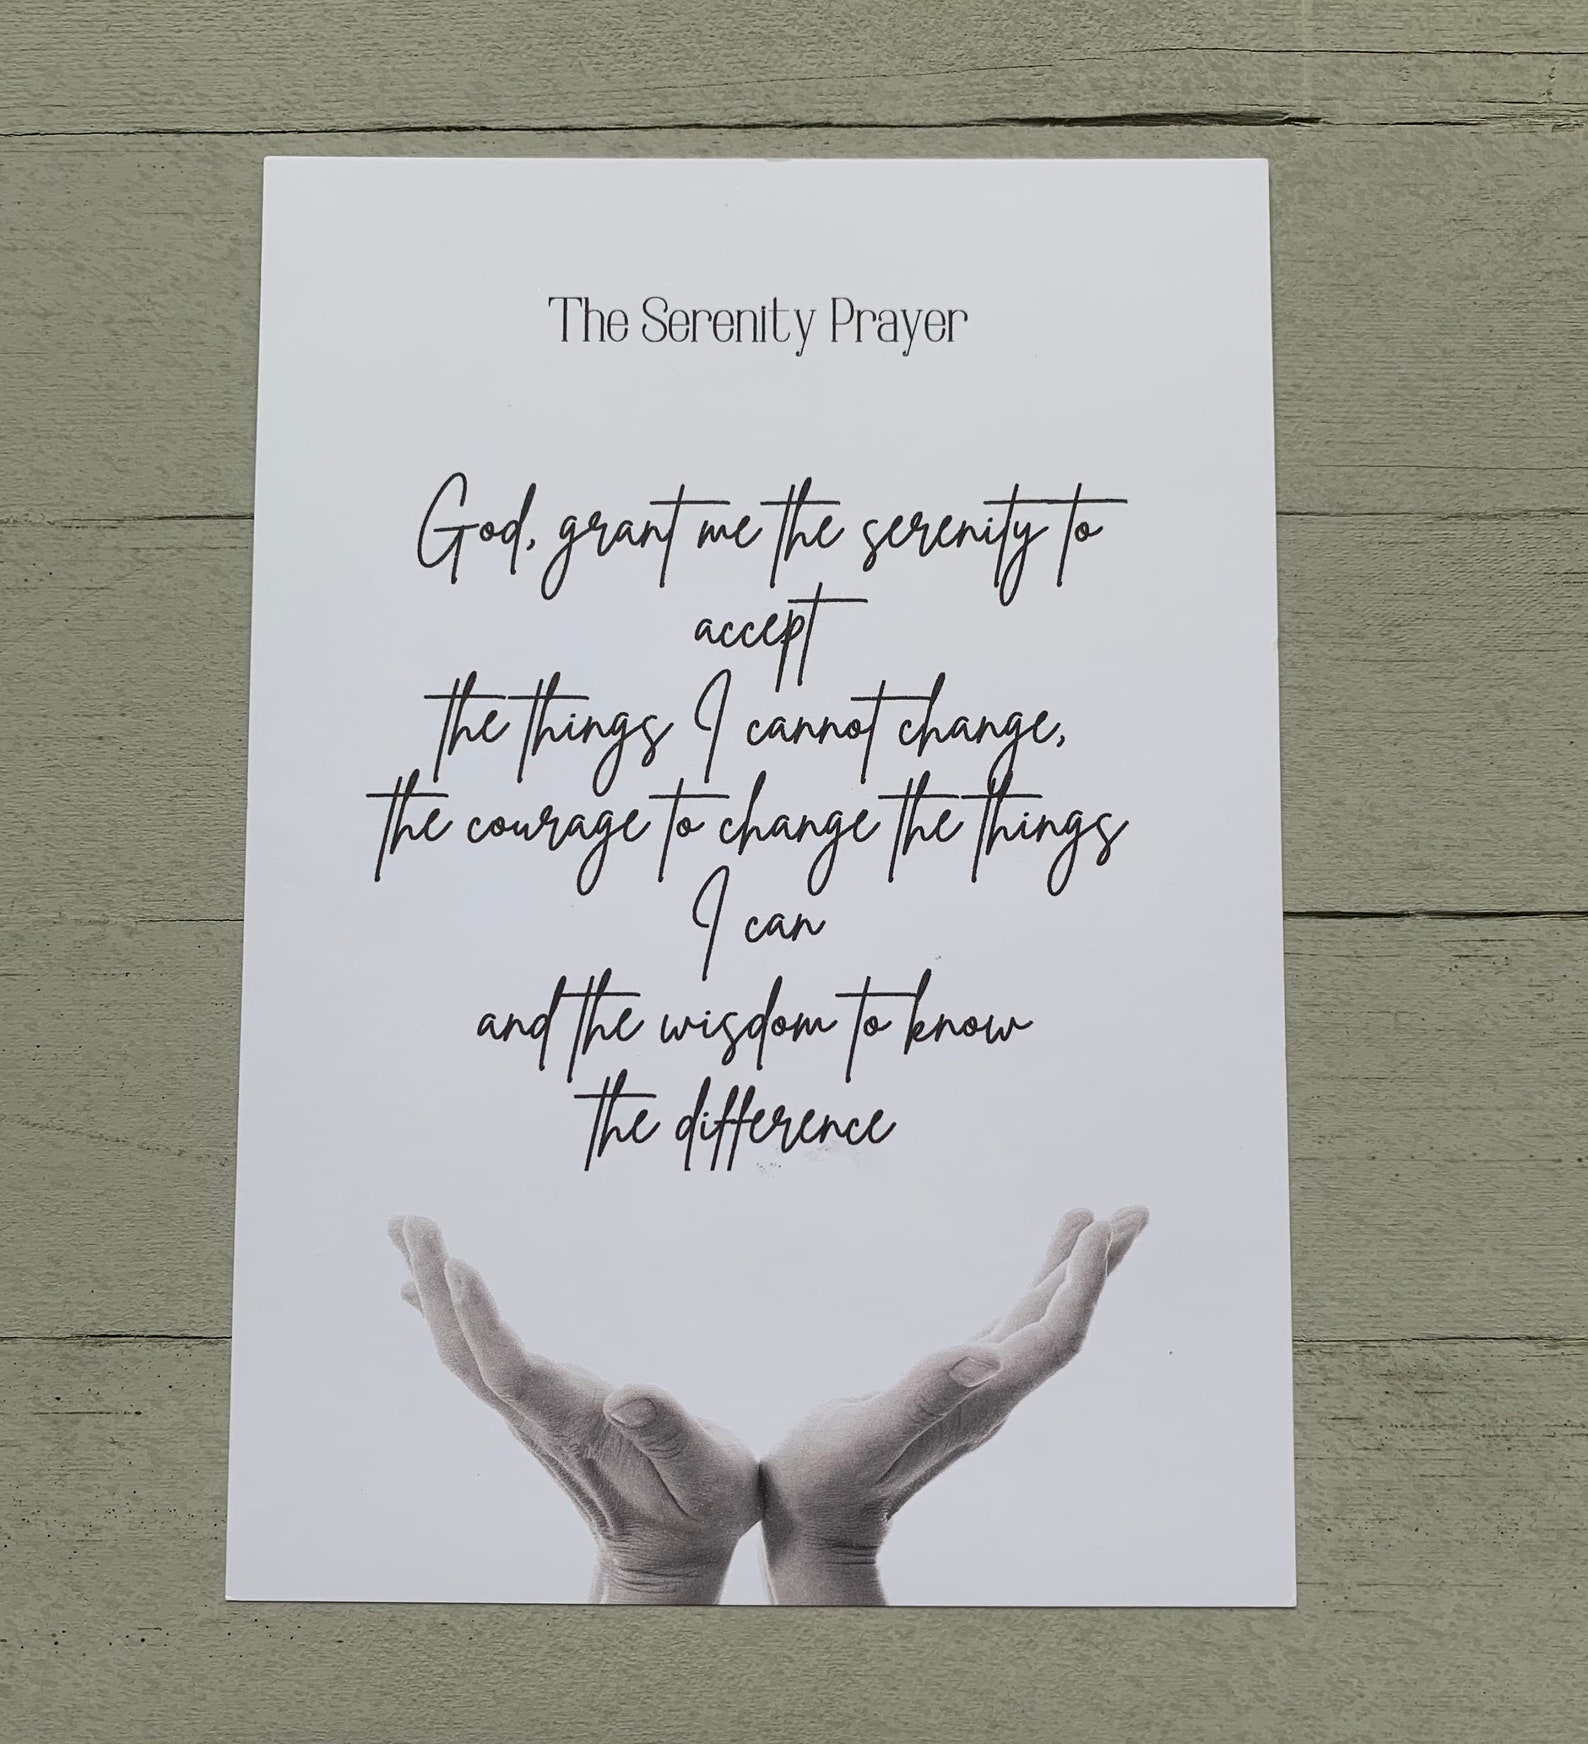 The Serenity Prayer
God, grant me the serenity to
accept
the things I cannot change,
the courage to change the things
I can
and the wisdom to know
the difference